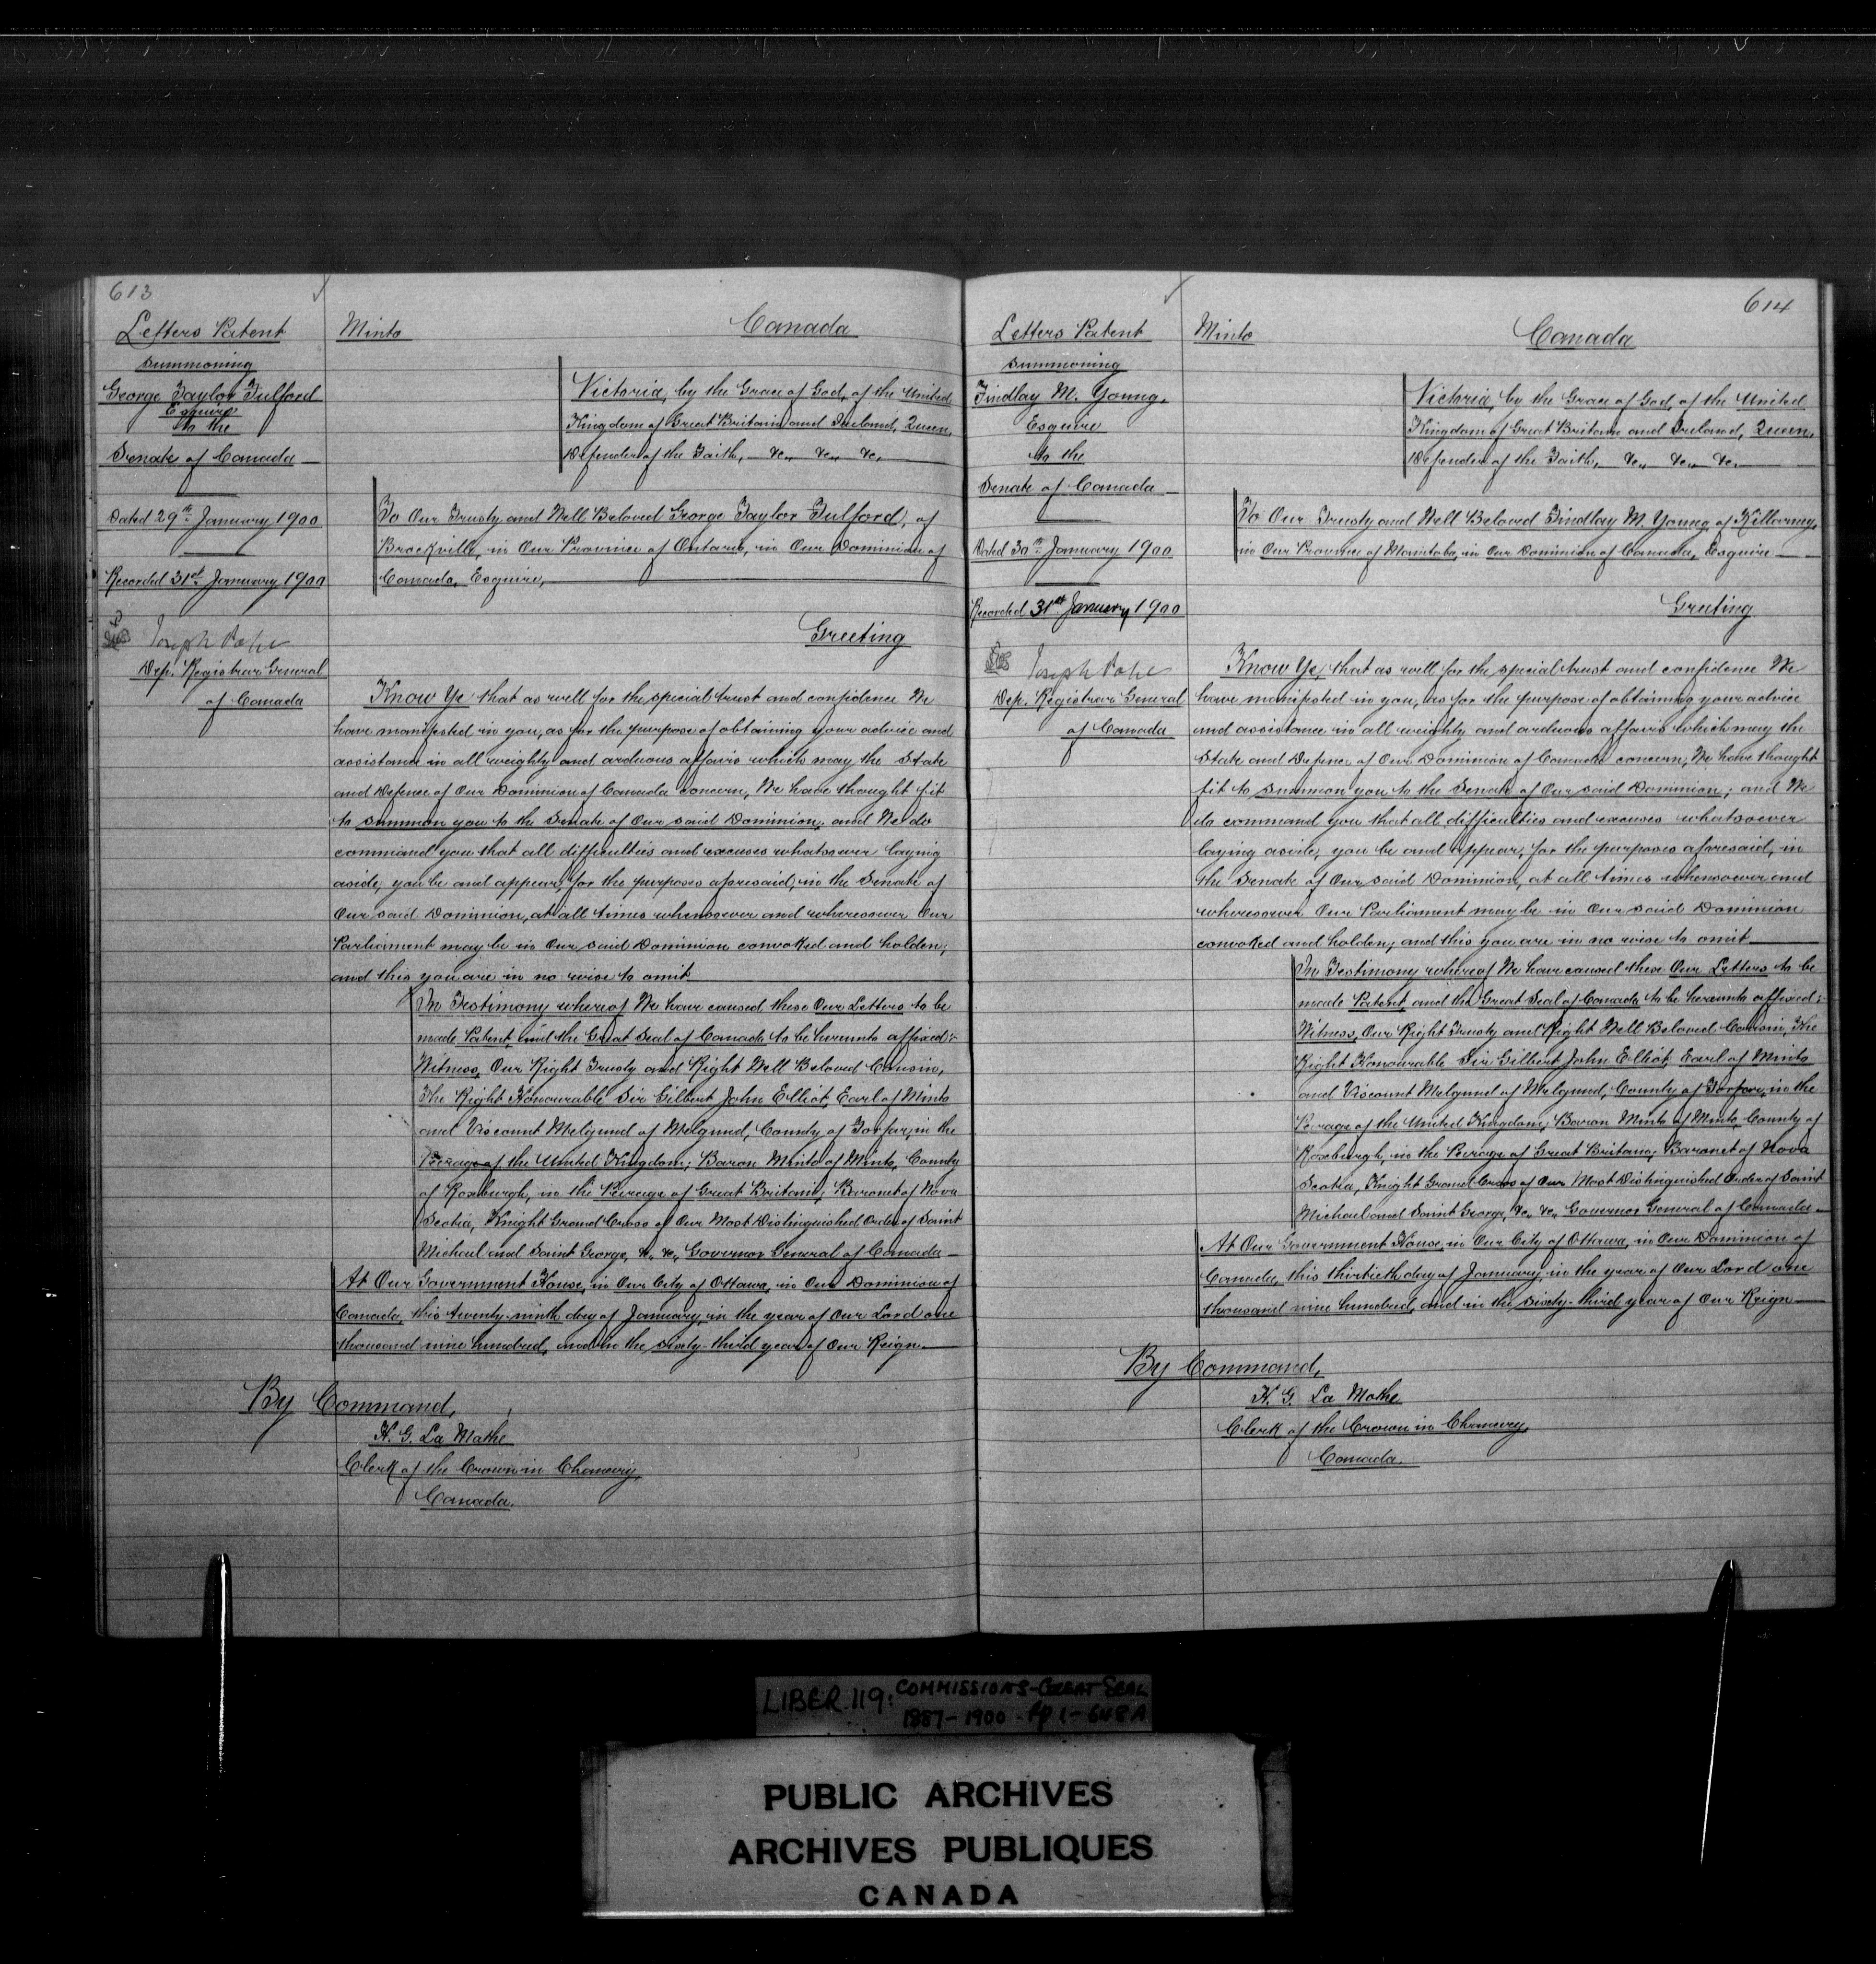 613
Letters Patent
summoning
George Taylor Fulford
Esquire
to the
Senate of Canada
Dated 29th January 1900
Recorded 31st January 1900
Joseph Pope
Dep. Registrar General
of Canada
Minto
Canada
Victoria, by the Grace of God, of the United
Kingdom of Great Britain and Ireland, Queen,
Defender of the Faith, &c., &c., &c.,
To Our Trusty and Well Beloved George Taylor Fulford, of
Brockville, in Our Province of Ontario, in Our Dominion of
Canada, Esquire,
Greeting
Know Ye that as well for the special trust and confidence We
have manifested in you, as for the purpose of obtaining your advice and
assistance in all weighty and arduous affairs which may the State
and Defence of Our Dominion of Canada concern, We have thought fit
to summon you to the Senate of Our said Dominion; and We do
command you that all difficulties and excuses whatsoever laying
aside, you be and appear, for the purposes aforesaid, in the Senate of
Our said Dominion, at all times whensoever and wheresoever Our
Parliament may be in Our said Dominion convoked and holden;
and this you are in no wise to omit
In Testimony whereof We have caused these Our Letters to be
made Patent, and the Great Seal of Canada to be hereunto affixed:-
Witness, Our Right Trusty and Right Well Beloved Cousin,
The Right Honourable Sir Gilbert John Elliot, Earl of Minto
and Viscount Melgund of Melgund, County of Forfar, in the
Peerage of the United Kingdom; Baron Minto of Minto, County
of Roxburgh, in the Peerage of Great Britain; Baronet of Nova
Scotia, Knight Grand Cross of Our Most Distinguished Order of Saint
Michael and Saint George, &c., &c., Governor General of Canada
At Our Government House, in Our City of Ottawa, in Our Dominion of
Canada, this twenty-ninth day of January, in the year of Our Lord one
thousand nine hundred, and in the sixty-third year of Our Reign.
By Command,
H. G. La Mothe
Clerk of the Crown in Chancery,
Canada.
614
Letters Patent
summoning
Findlay M. Young,
Esquire
to the
Senate of Canada
Dated 30th January 1900
Recorded 31st January 1900
Joseph Pope
Dep. Registrar General
of Canada
Minto
Canada
Victoria, by the Grace of God, of the United
Kingdom of Great Britain and Ireland, Queen,
Defender of the Faith, &c., &c., &c.
To Our Trusty and Well Beloved Findlay M. Young, of Killarney,
in Our Province of Manitoba, in Our Dominion of Canada, Esquire
Greeting
Know Ye, that as well for the special trust and confidence We
have manifested in you, as for the purpose of obtaining your advice
and assistance in all weighty and arduous affairs which may the
State and Defence of Our Dominion of Canada concern, We have thought
fit to summon you to the Senate of Our said Dominion; and We
do command you that all difficulties and excuses whatsoever
laying aside, you be and appear, for the purposes aforesaid, in
the Senate of Our said Dominion, at all times whensoever and
wheresoever Our Parliament may be in Our said Dominion
convoked and holden; and this you are in no wise to omit
In Testimony whereof We have caused these Our Letters to be
made Patent, and the Great Seal of Canada to be hereunto affixed:-
Witness, Our Right Trusty and Right Well Beloved Cousin, The
Right Honourable Sir Gilbert John Elliot, Earl of Minto
and Viscount Melgund of Melgund, County of Forfar, in the
Peerage of the United Kingdom; Baron Minto of Minto, County of
Roxburgh, in the Peerage of Great Britain; Baronet of Nova
Scotia, Knight Grand Cross of Our Most Distinguished Order of Saint
Michael and Saint George, &c., &c., Governor General of Canada
At Our Government House, in Our City of Ottawa, in Our Dominion of
Canada, this thirtieth day of January, in the year of Our Lord one
thousand nine hundred, and in the sixty-third year of Our Reign
By Command,
H. G. La Mothe
Clerk of the Crown in Chancery,
Canada.
LIBER 119: COMMISSIONS-GREAT SEAL
1887-1900 - Pp 1-648A
PUBLIC ARCHIVES
ARCHIVES PUBLIQUES
CANADA